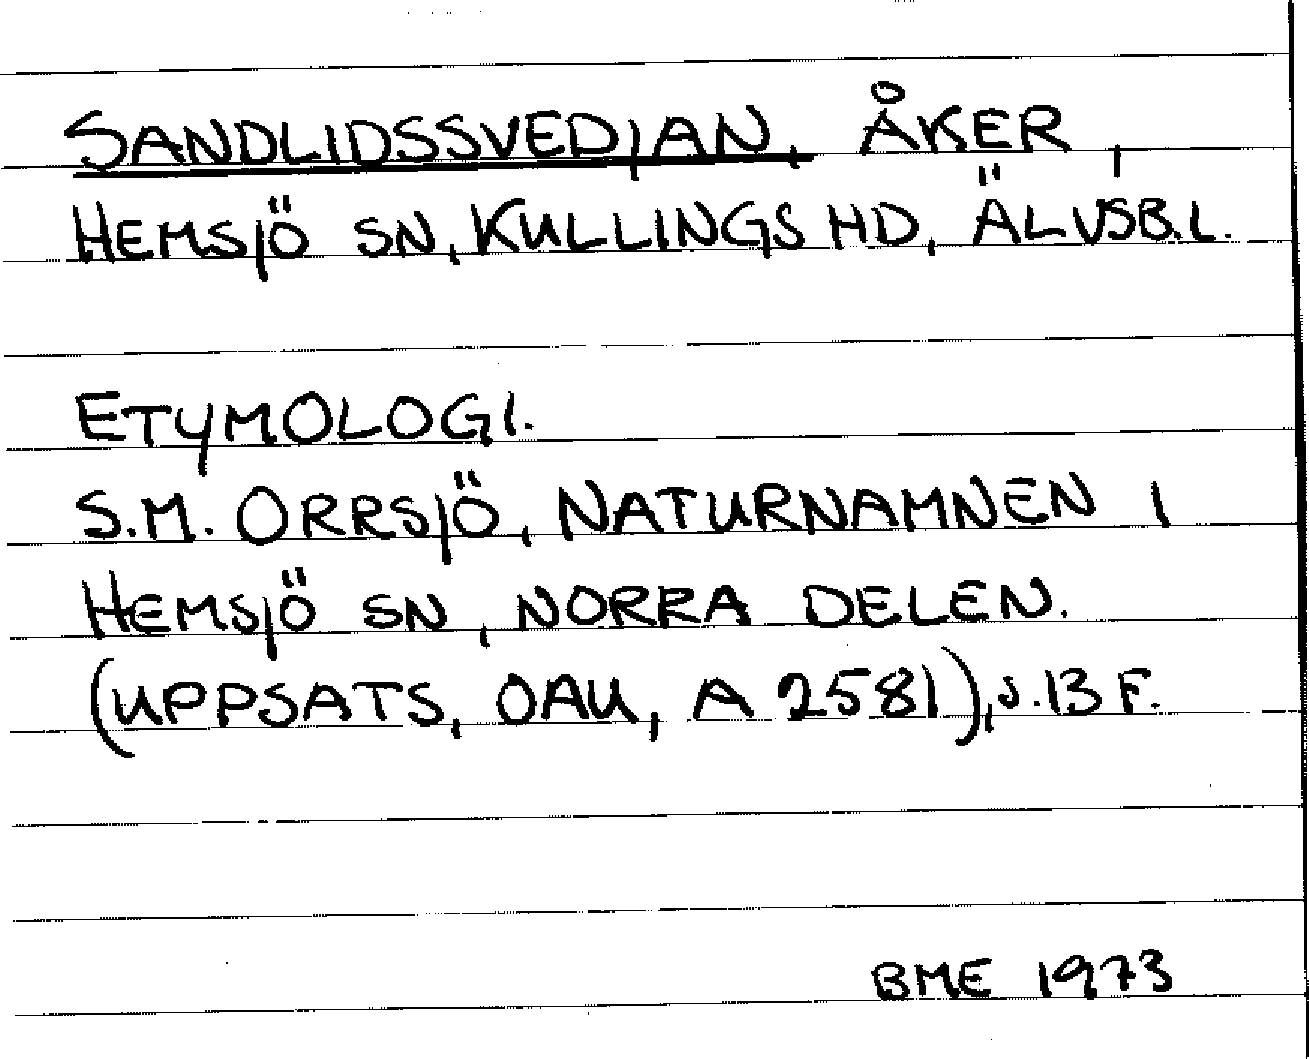 SANDLIDSSVEDJAN, ÅKER,
HEMSJÖ SN, KULLINGS HD, ÄLVSB.L.
ETYMOLOGI.
S.M. ORRSJÖ, NATURNAMNEN I
HEMSJÖ SN, NORRA DELEN.
(UPPSATS, OAU, A 2581), s.13 F.
BME 1973